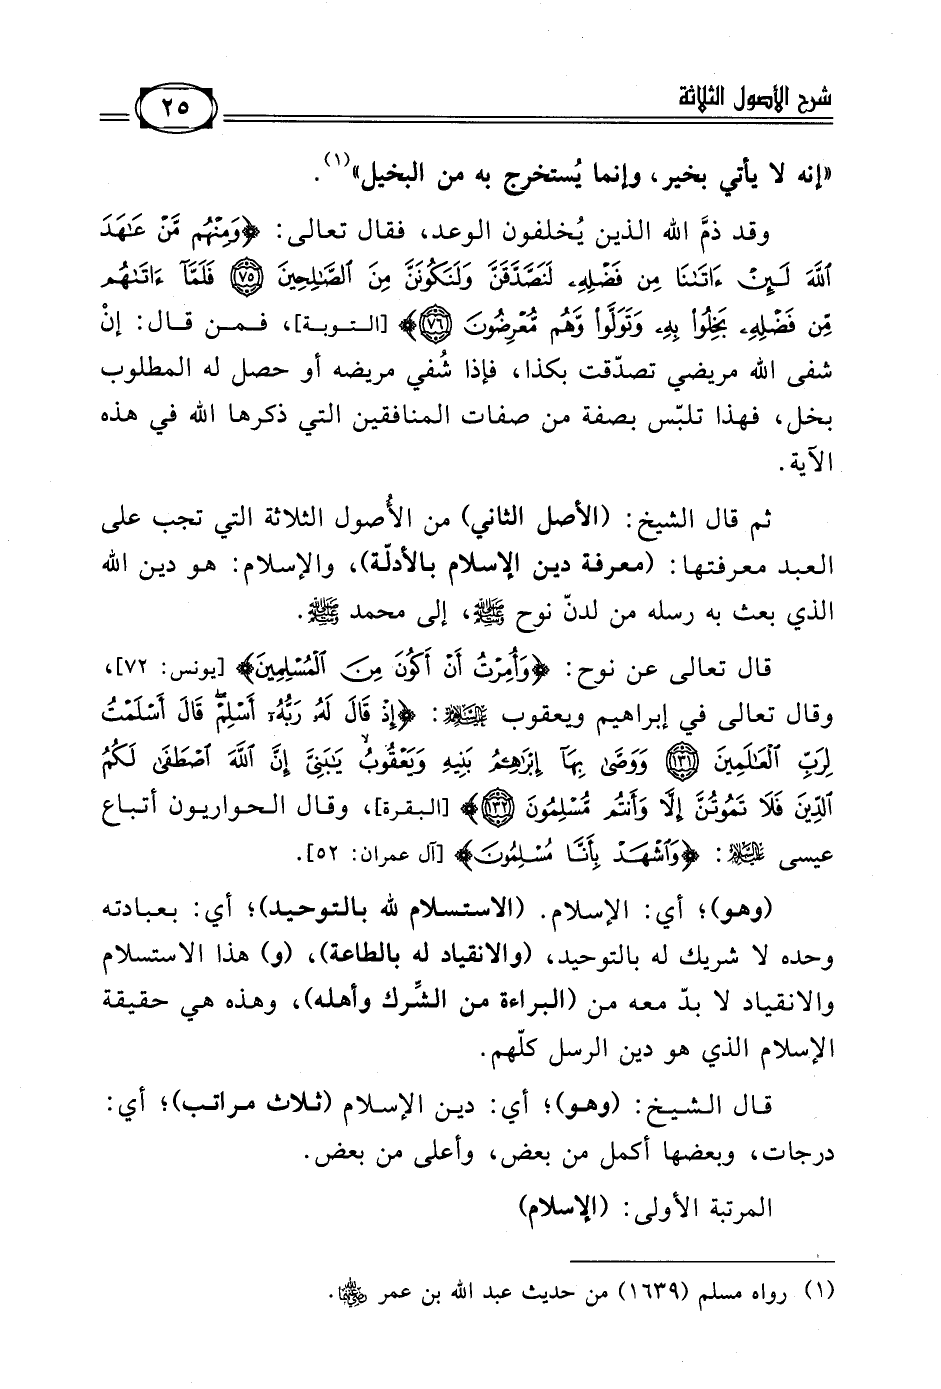 شرح الأصول الثلاثة
٢٥
«إنه لا يأتي بخير، وإنما يُستخرج به من البخيل»(١).
وقد ذمَّ الله الذين يُخلفون الوعد، فقال تعالى: ﴿وَمِنْهُم مَّنْ عَٰهَدَ
ٱللَّهَ لَئِنْ ءَاتَىٰنَا مِن فَضْلِهِۦ لَنَصَّدَّقَنَّ وَلَنَكُونَنَّ مِنَ ٱلصَّٰلِحِينَ ٧٥ فَلَمَّآ ءَاتَىٰهُم
مِّن فَضْلِهِۦ بَخِلُوا۟ بِهِۦ وَتَوَلَّوا۟ وَّهُم مُّعْرِضُونَ ٧٦﴾ [التوبة]، فمن قال: إنْ
شفى الله مريضي تصدّقت بكذا، فإذا شُفي مريضه أو حصل له المطلوب
بخل، فهذا تلبّس بصفة من صفات المنافقين التي ذكرها الله في هذه
الآية.
ثم قال الشيخ: (الأصل الثاني) من الأُصول الثلاثة التي تجب على
العبد معرفتها: (معرفة دين الإسلام بالأدلّة)، والإسلام: هو دين الله
الذي بعث به رسله من لدنّ نوح ﷺ، إلى محمد ﷺ.
قال تعالى عن نوح: ﴿وَأُمِرْتُ أَنْ أَكُونَ مِنَ ٱلْمُسْلِمِينَ﴾ [يونس: ٧٢]،
وقال تعالى في إبراهيم ويعقوب عليهما السلام: ﴿إِذْ قَالَ لَهُۥ رَبُّهُۥٓ أَسْلِمْ ۖ قَالَ أَسْلَمْتُ
لِرَبِّ ٱلْعَٰلَمِينَ ١٣١ وَوَصَّىٰ بِهَآ إِبْرَٰهِـۧمُ بَنِيهِ وَيَعْقُوبُ يَٰبَنِىَّ إِنَّ ٱللَّهَ ٱصْطَفَىٰ لَكُمُ
ٱلدِّينَ فَلَا تَمُوتُنَّ إِلَّا وَأَنتُم مُّسْلِمُونَ ١٣٢﴾ [البقرة]، وقال الحواريون أتباع
عيسى عليه السلام: ﴿وَٱشْهَدْ بِأَنَّا مُسْلِمُونَ﴾ [آل عمران: ٥٢].
(وهو)؛ أي: الإسلام. (الاستسلام لله بالتوحيد)؛ أي: بعبادته
وحده لا شريك له بالتوحيد، (والانقياد له بالطاعة)، (و) هذا الاستسلام
والانقياد لا بدّ معه من (البراءة من الشِّرك وأهله)، وهذه هي حقيقة
الإسلام الذي هو دين الرسل كلّهم.
قال الشيخ: (وهو)؛ أي: دين الإسلام (ثلاث مراتب)؛ أي:
درجات، وبعضها أكمل من بعض، وأعلى من بعض.
المرتبة الأولى: (الإسلام)
(١) رواه مسلم (١٦٣٩) من حديث عبد الله بن عمر رضي الله عنهما.